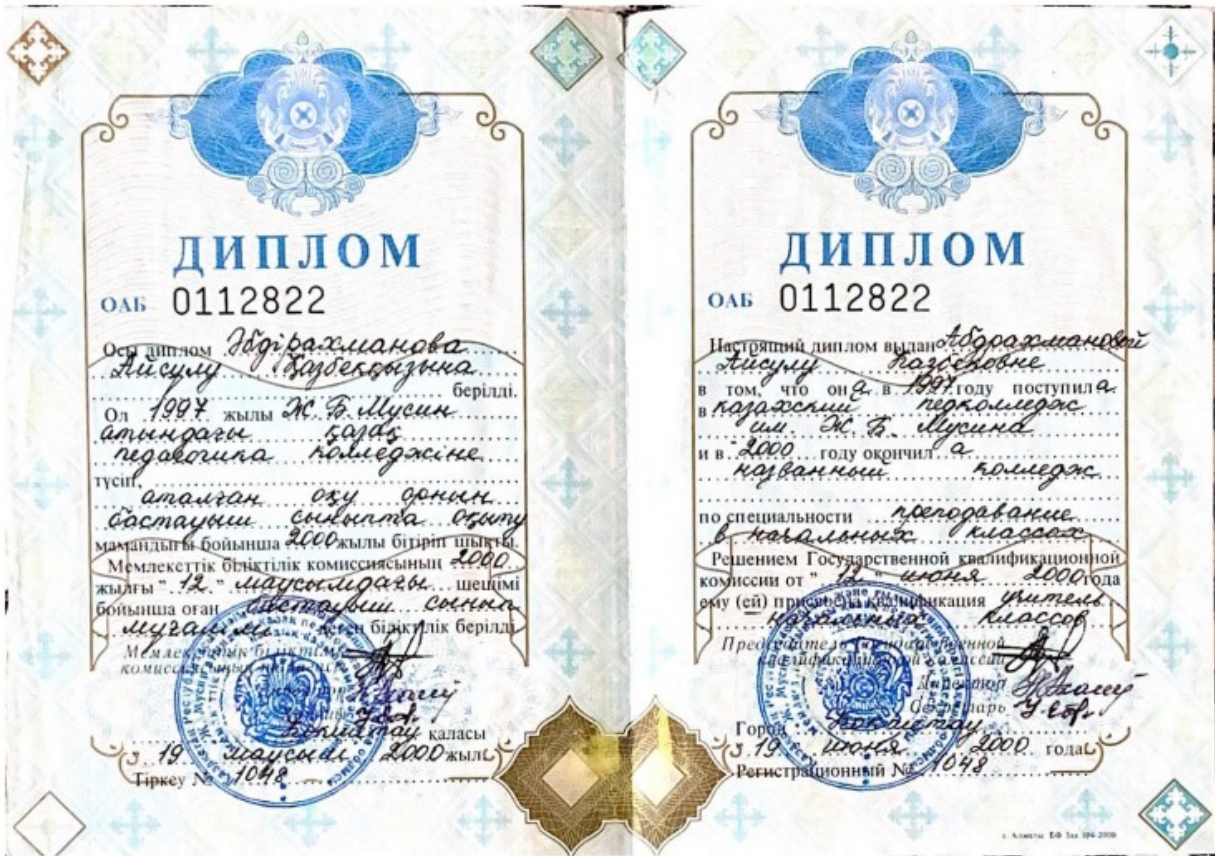 ДИПЛОМ
ОАБ 0112822
Осы диплом Әбдірахманова
Айсулу Қазбекқызына
берілді.
Ол 1997 жылы Ж. Б. Мусин
атындағы қазақ
педагогика колледжіне
түсіп,
аталған оқу орнын
бастауыш сыныпта оқыту
мамандығы бойынша 2000 жылы бітіріп шықты.
Мемлекеттік біліктілік комиссиясының 2000
жылғы " 12 " маусымдағы шешімі
бойынша оған бастауыш сынып
мұғалімі біліктілік берілді
Мемлекеттік біліктілік
комиссиясының
Көкшетау қаласы
19 маусым 2000 жыл
Тіркеу № 1048
ДИПЛОМ
ОАБ 0112822
Настоящий диплом выдан Абдрахмановой
Айсулу Казбековне
в том, что она в 1997 году поступила
в казахский педколледж
им. Ж. Б. Мусина
и в 2000 году окончил а
названный колледж
по специальности преподавание
в начальных классах
Решением Государственной квалификационной
комиссии от " 12 " июня 2000 года
ему (ей) присвоена квалификация учитель
начальных классов
Председатель Государственной
квалификационной комиссии
Директор
Секретарь
Город Кокшетау
19 июня 2000 года
Регистрационный № 1048
г. Алматы БФ Зак